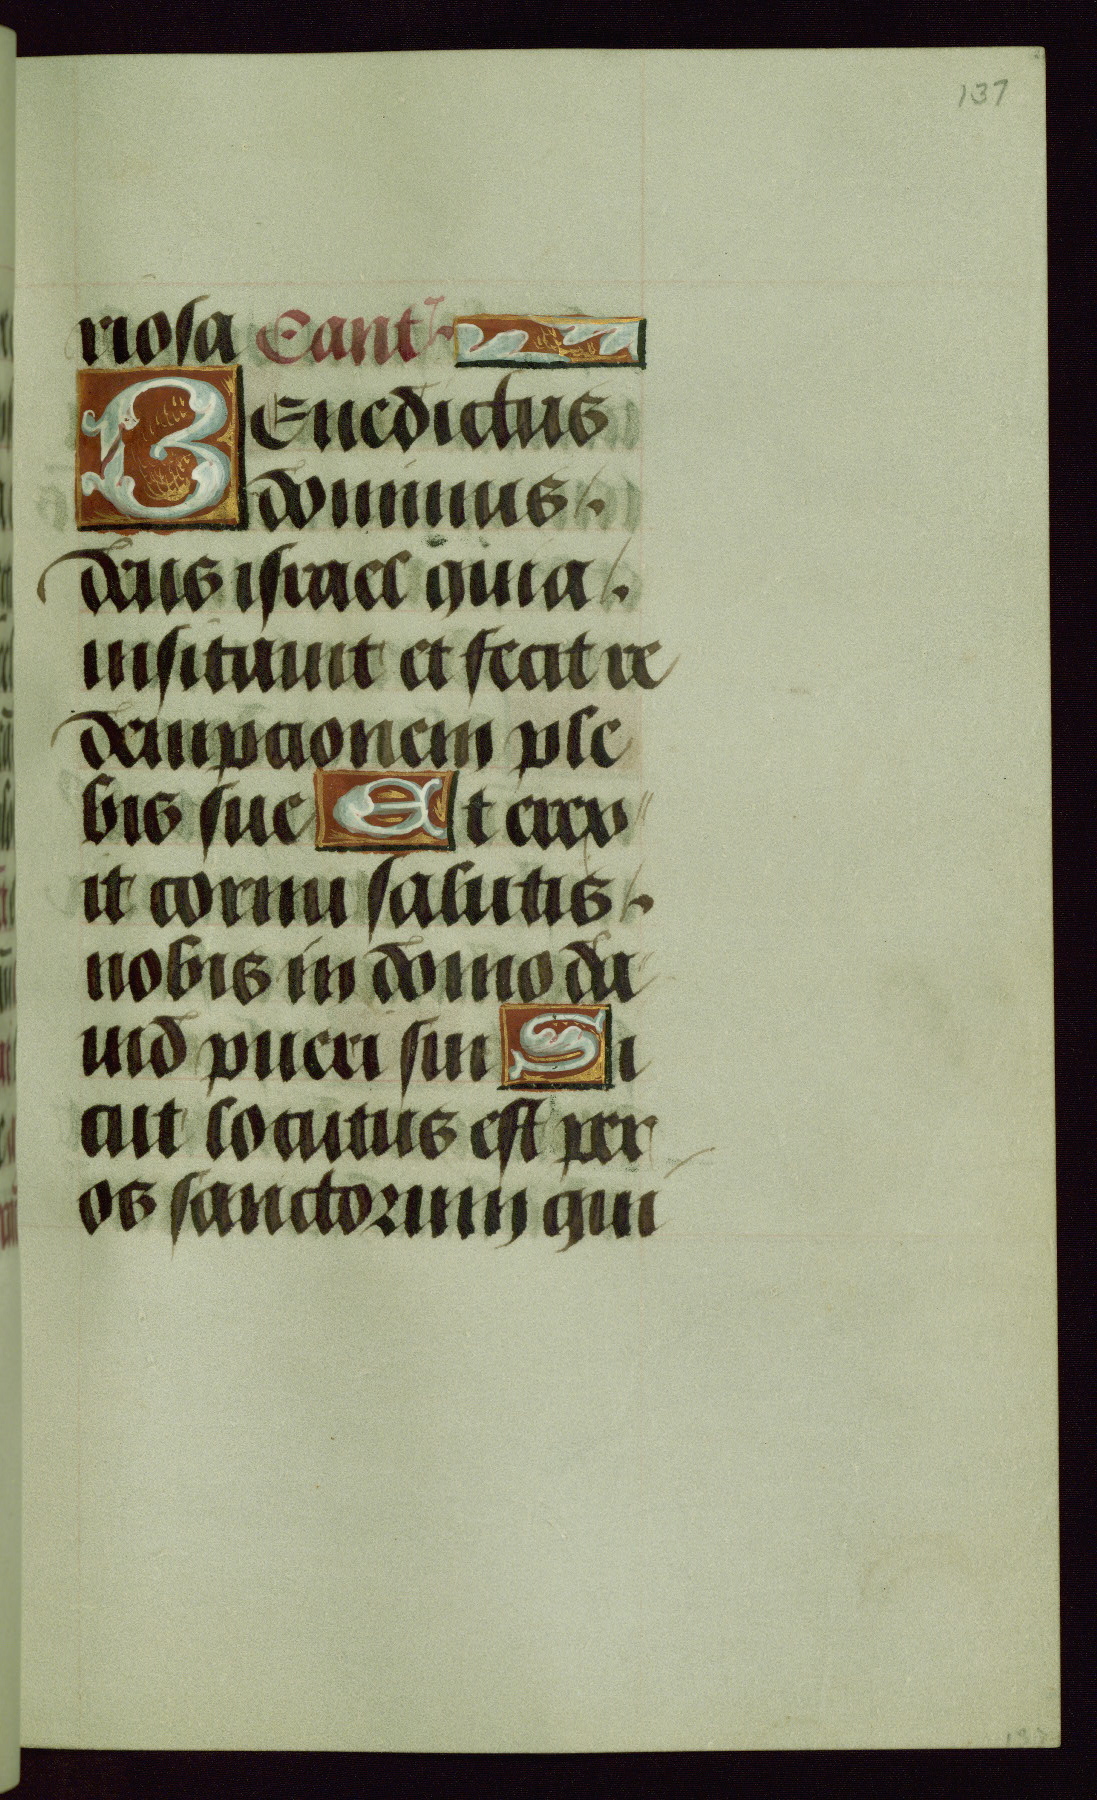 137
riosa Cant
Benedictus
dominus
deus israel quia
visitauit et fecit re
dempcionem ple
bis sue Et erex
it cornu salutis
nobis in domo da
uid pueri sui Si
cut locutus est per
os sanctorum qui